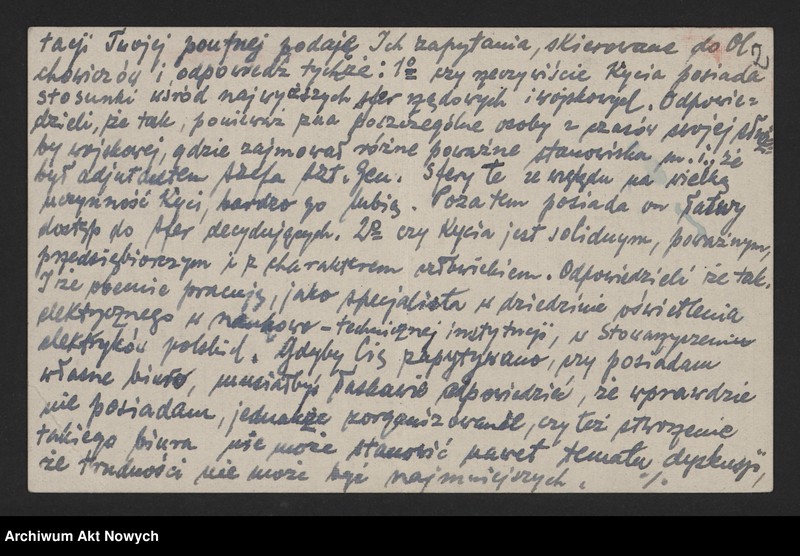 tacji Twojej poufnej podaję Ich zapytania, skierowane do Ol-
2
chowiczów i odpowiedź tychże: 1º czy rzeczywiście Kycia posiada
stosunki wśród najwyższych sfer rządowych i wojskowych. Odpowie-
dzieli, że tak, ponieważ zna poszczególne osoby z czasów swojej służ-
by wojskowej, gdzie zajmował różne poważne stanowiska m. i. że
był adjutantem szefa szt. Gen. Sfery te ze względu na wielką
uczynność Kyci, bardzo go lubią. Pozatem posiada on łatwy
dostęp do sfer decydujących. 2º czy Kycia jest solidnym, poważnym,
przedsiębiorczym i z charakterem człowiekiem. Odpowiedzieli że tak.
I że obecnie pracuję, jako specjalista w dziedzinie oświetlenia
elektrycznego w naukowo-technicznej instytucji, w Stowarzyszeniu
elektryków polskich. Gdyby Cię zapytywano, czy posiadam
własne biuro, musiałbyś łaskawie odpowiedzieć, że wprawdzie
nie posiadam, jednakże zorganizowanie, czy też stworzenie
takiego biura nie może stanowić nawet tematu dyskusji,
że trudności nie może być najmniejszych. %
Archiwum Akt Nowych